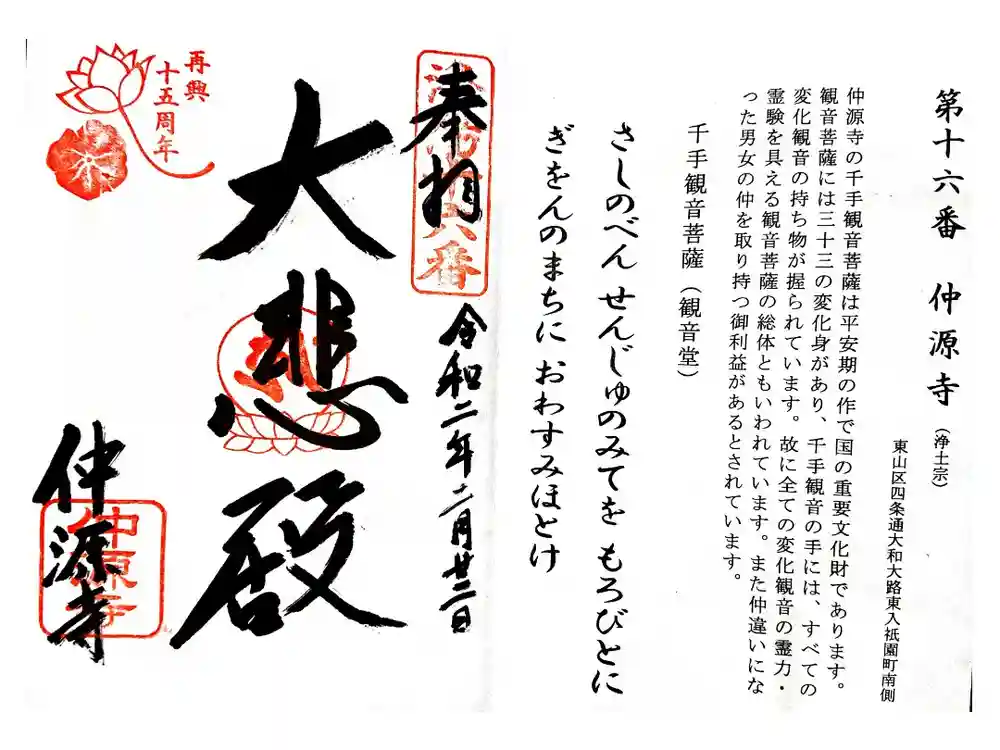 第十六番 仲源寺（浄土宗）
東山区四条通大和大路東入祇園町南側
仲源寺の千手観音菩薩は平安期の作で国の重要文化財であります。
観音菩薩には三十三の変化身があり、千手観音の手には、すべての
変化観音の持ち物が握られています。故に全ての変化観音の霊力・
霊験を具える観音菩薩の総体ともいわれています。また仲違いにな
った男女の仲を取り持つ御利益があるとされています。
千手観音菩薩（観音堂）
さしのべん せんじゅのみてを もろびとに
ぎをんのまちに おわすみほとけ
奉拝
洛陽十六番
令和二年二月廿二日
大悲殿
仲源寺
仲源寺
再興
十五周年